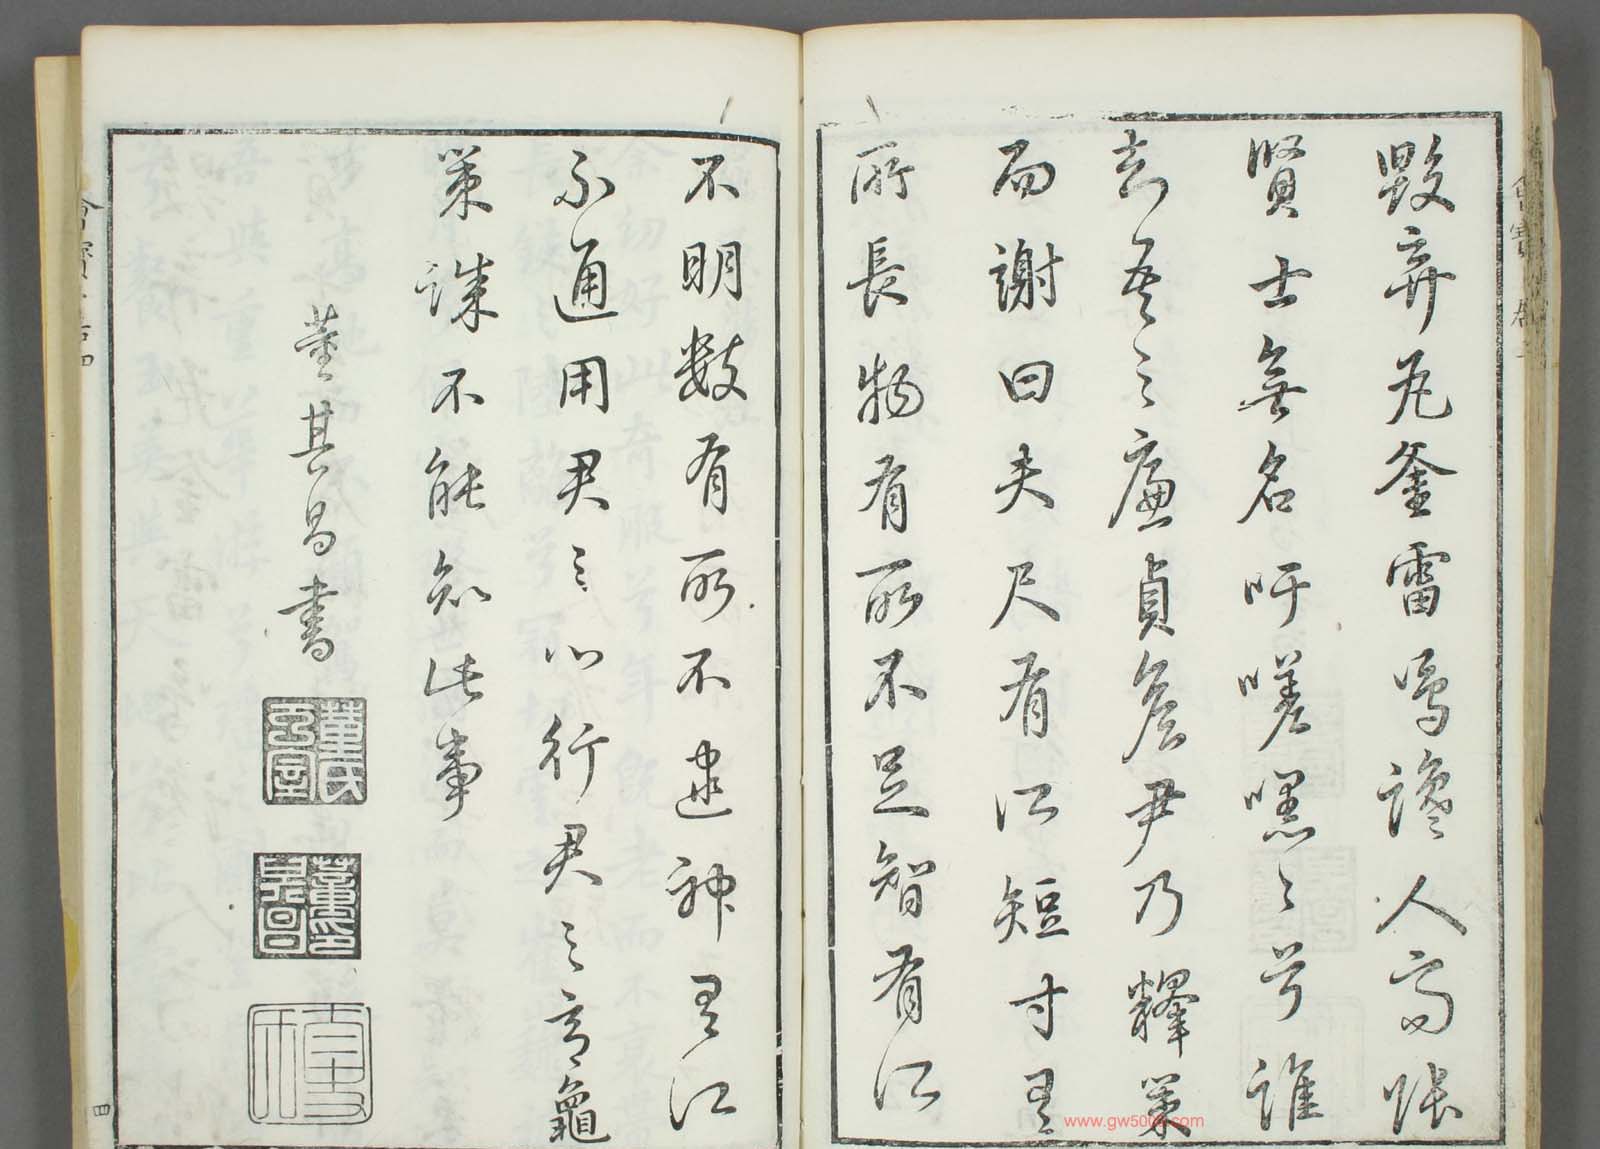 毀弃瓦釜雷鳴讒人高張
賢士無名吁嗟嘿〻兮誰
知吾之廉貞詹尹乃釋策
而謝曰夫尺有所短寸有
所長物有所不足智有所
不明數有所不逮神有所
不通用君之心行君之意龜
策誠不能知此事
董其昌書
董氏玄宰
四